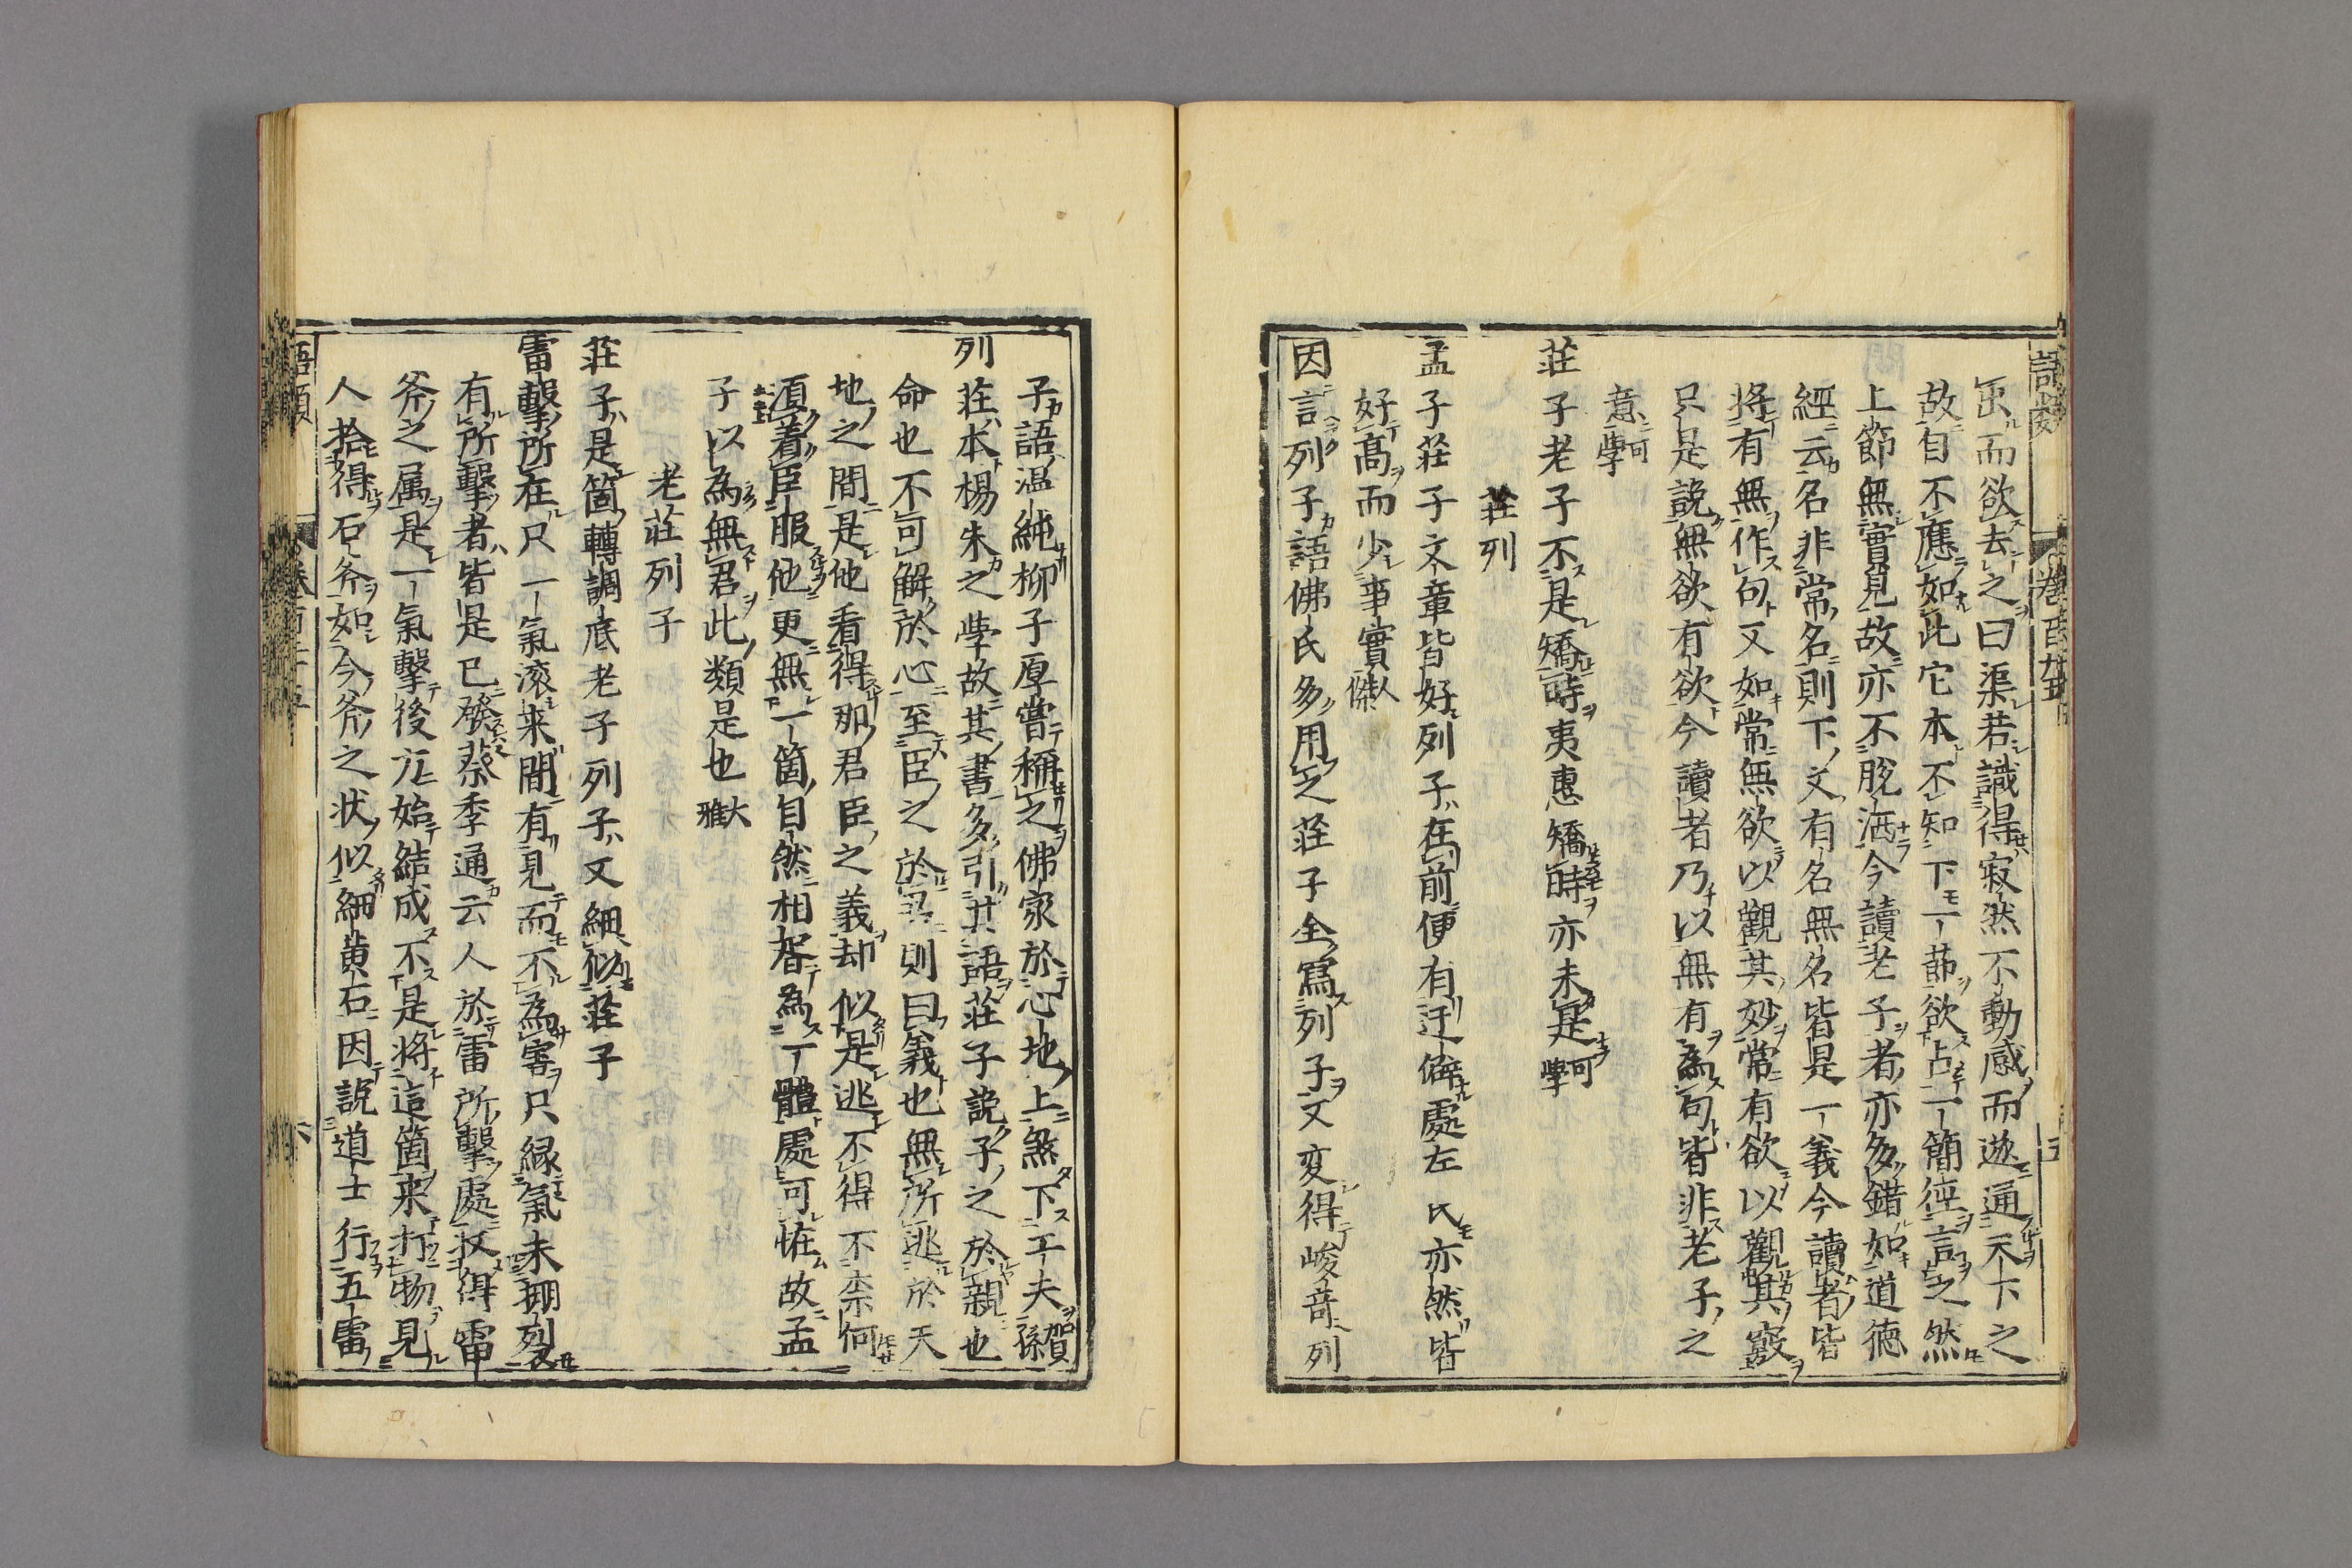 虫而欲去之曰渠若識得寂然不動感而遂通天下之
故自不應如此它本不知下一莭欲占一簡徑言之然
上節無實見故亦不脫洒今讀老子者亦多錯如道德
經云名非常名則下文有名無名皆是一義今讀者皆
将有無作句又如常無欲以觀其妙常有欲以觀其竅
只是說無欲有欲今讀者乃以無有為句皆非老子之
意可學
莊子老子不是矯時夷惠矯時亦未是可學
莊列
孟子莊子文章皆好列子在前便有迂僻處左氏亦然皆
好髙而少事實人傑
因言列子語佛氏多用之莊子全寫列子又変得峻竒列
子語温純柳子厚嘗稱之佛家於心地上煞下工夫賀孫
列莊本楊朱之學故其書多引其語莊子說子之於親也
命也不可解於心至臣之於君則曰義也無所逃於天
地之間是他看得那君臣之義却似是逃不得不柰何
湏着臣服他更無一箇自然相胥為一體處可恠故孟
子以為無君此類是也大雅
老莊列子
莊子是箇轉調底老子列子又細似莊子
雷擊所在只一氣滚来間有見而不為害只縁氣未掤裂
有所擊者皆是已發蔡季通云人於雷所擊處收得雷
斧之属是一氣擊後方始結成不是将這箇来打物見
人拾得石斧如今斧之状似細黄石因説道士行五雷
語類
卷百二十五
六